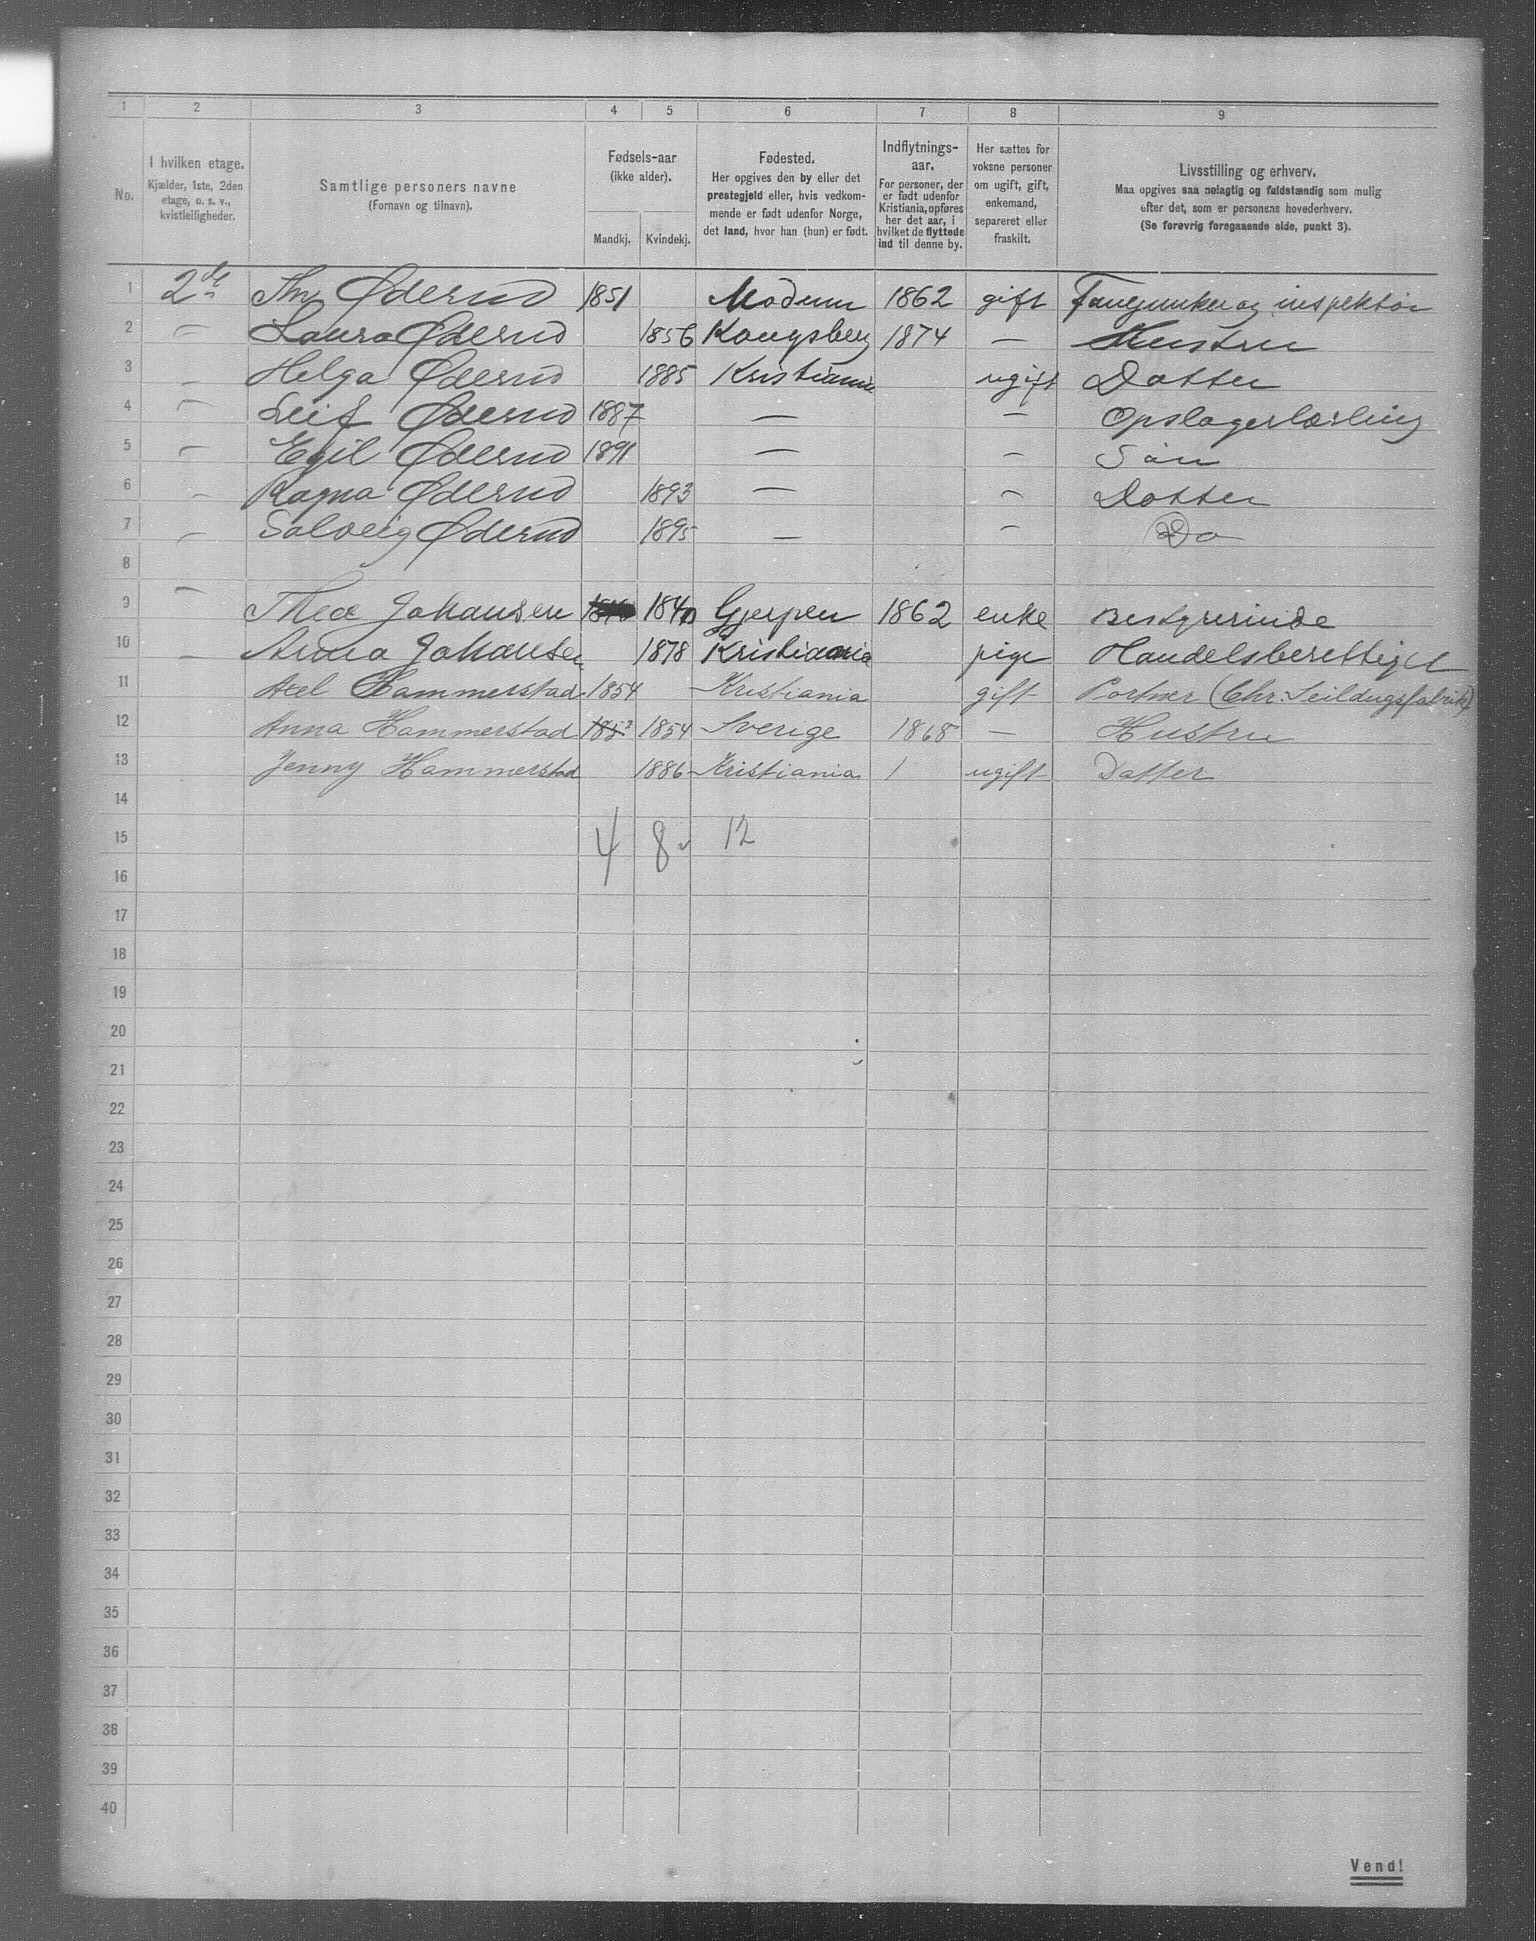 1 2 3 4 5 6 7 8 9
No.
I hvilken etage.
Kjælder, 1ste, 2den
etage, o. s. v.,
kvistleiligheder.
Samtlige personers navne
(Fornavn og tilnavn).
Fødsels-aar
(ikke alder).
Mandkj. Kvindekj.
Fødested.
Her opgives den by eller det
prestegjeld eller, hvis vedkom-
mende er født udenfor Norge,
det land, hvor han (hun) er født.
Indflytnings-
aar.
For personer, der
er født udenfor
Kristiania, opføres
her det aar, i
hvilket de flyttede
ind til denne by.
Her sættes for
voksne personer
om ugift, gift,
enkemand,
separeret eller
fraskilt.
Livsstilling og erhverv.
Maa opgives saa nøiagtig og fuldstændig som mulig
efter det, som er personens hovederhverv.
(Se forøvrig foregaaende side, punkt 3).
1 2de Øderud 1851 Modum 1862 gift og inspektør
2 — Laura Øderud 1856 Kongsberg 1874 — Hustru
3 — Helga Øderud 1885 Kristiania ugift Datter
4 — Leif Øderud 1887 — — Opslagerlærling
5 — Egil Øderud 1891 — — Søn
6 — Ragna Øderud 1893 — — Datter
7 — Solveig Øderud 1895 — — Do
8 —
9 Thea Johansen 1840 Gjerpen 1862 enke Bestyrerinde
10 — Anna Johansen 1878 Kristiania pige Handelsberettiget
11 Axel Hammerstad 1854 Kristiania gift Portner (Chr. Seildugsfabrik)
12 Anna Hammerstad 1854 Sverige 1868 — Hustru
13 Jenny Hammerstad 1886 Kristiania / ugift Datter
14
15 4 8 12
16
17
18
19
20
21
22
23
24
25
26
27
28
29
30
31
32
33
34
35
36
37
38
39
40
Vend!